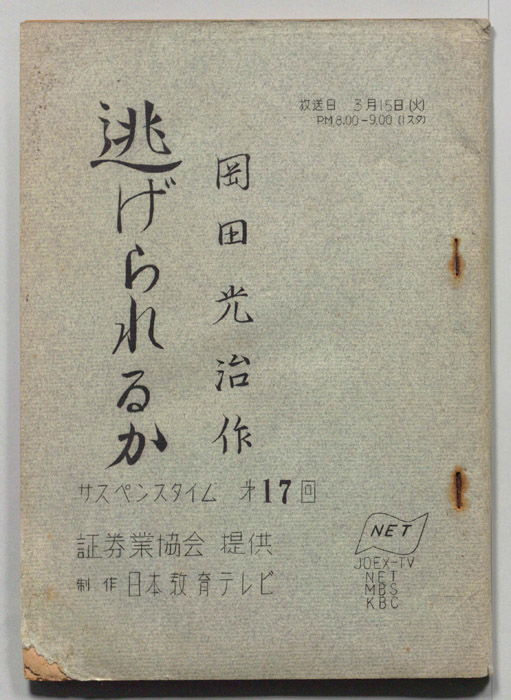 放送日 3月15日(火)
PM8.00-9.00(1スタ)
逃げられるか
岡田光治作
サスペンスタイム 才17回
証券業協会 提供
制作 日本教育テレビ
NET
JOEX-TV
NET
MBS
KBC